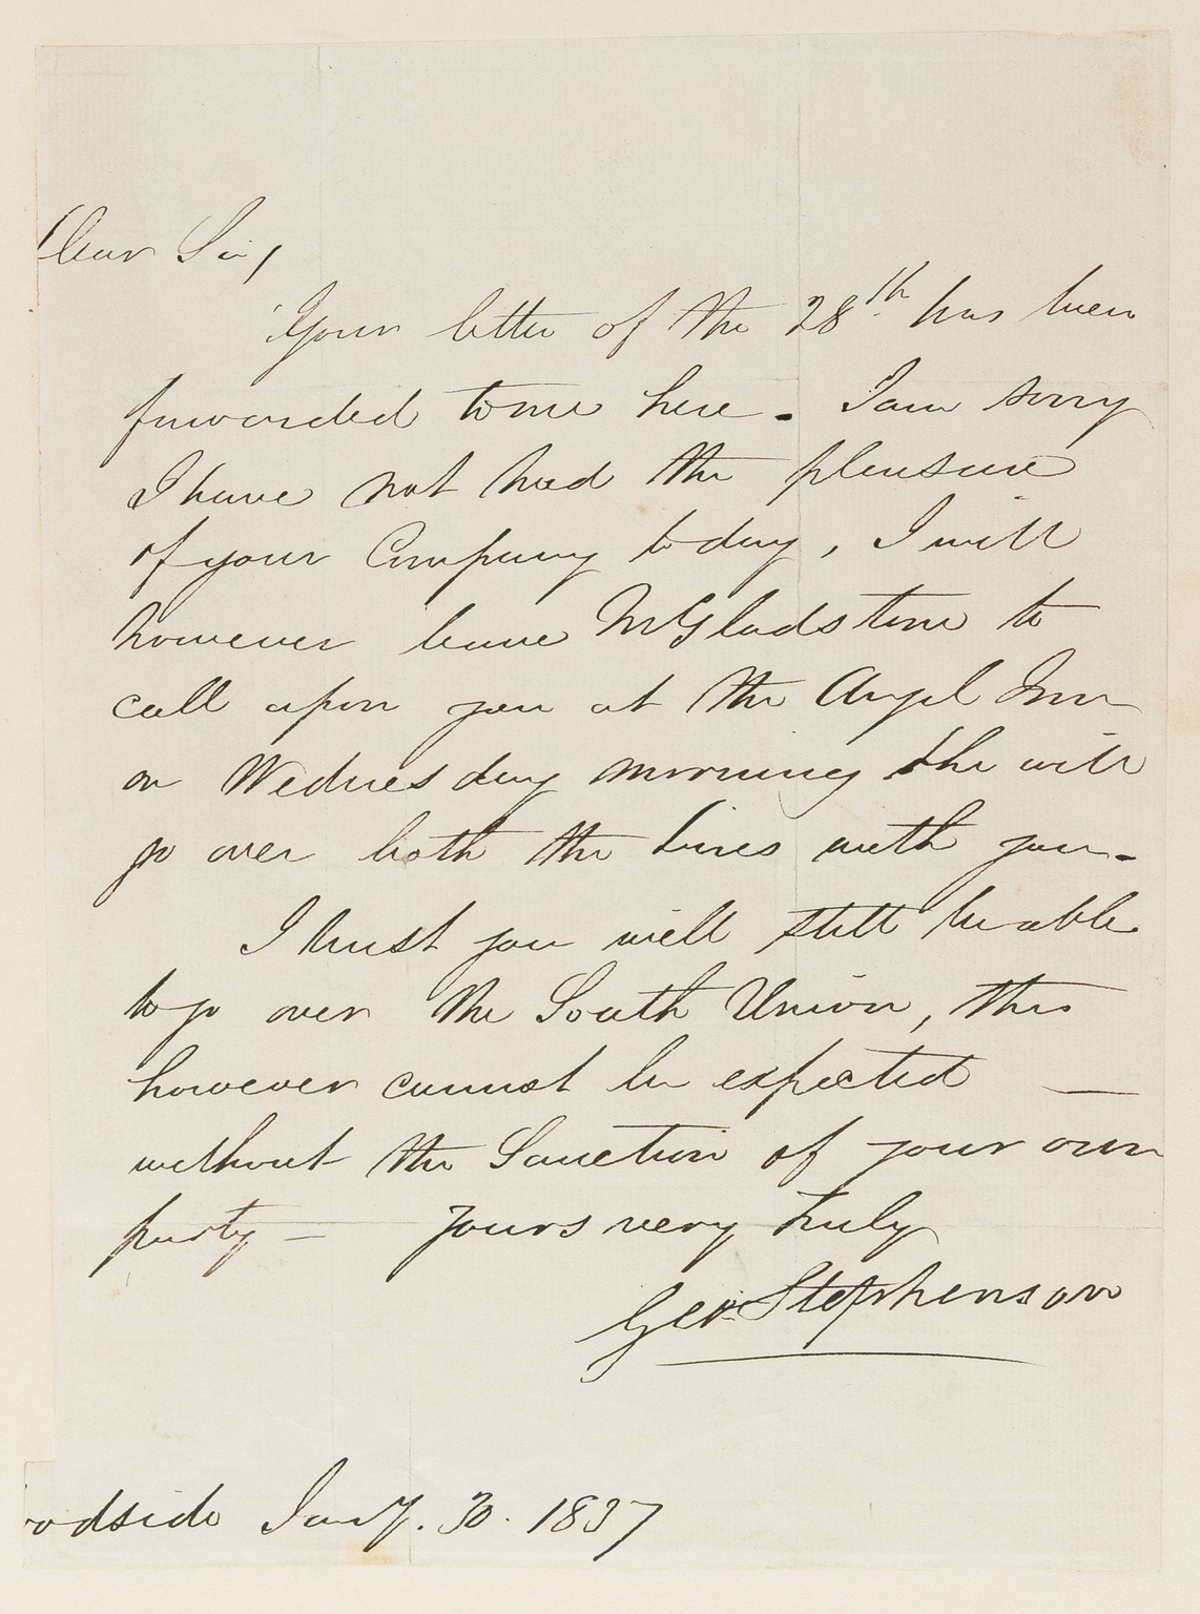 Dear Sir,
Your letter of the 28th has been
forwarded to me here. I am sorry
I have not had the pleasure
of your Company to day, I will
however leave Mr Gladstone to
call upon you at the Angel Inn
on Wednesday morning & he will
go over both the lines with you.
I trust you will still be able
to go over the South Union, this
however cannot be expected —
without the Sanction of your own
party — yours very truly
Geo. Stephenson
odside Jany. 30. 1837